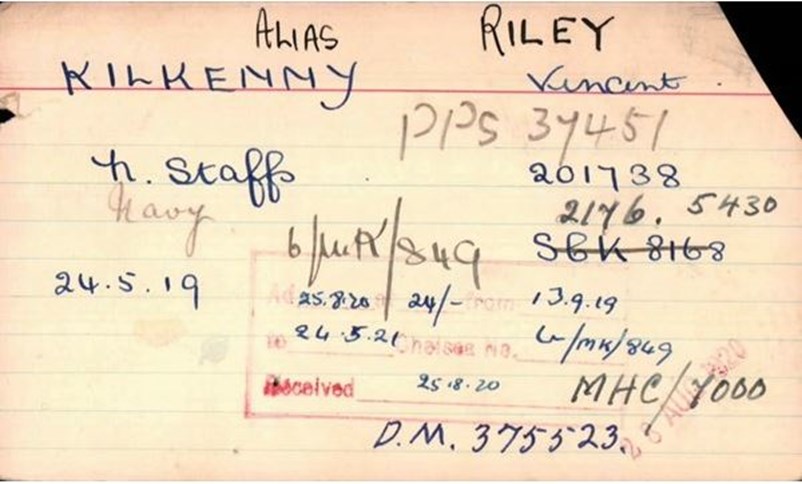 ALIAS RILEY
KILKENNY Vincent
PPS 37451
N. Staffs 201738
Navy 2176. 5430
6/MK/849 SBK 8168
24.5.19 25.8.20 24/- from 13.9.19
to 24.5.21 Chelsea No. 6/MK/849
Received 25.8.20 MHC/7000
D.M. 375523.